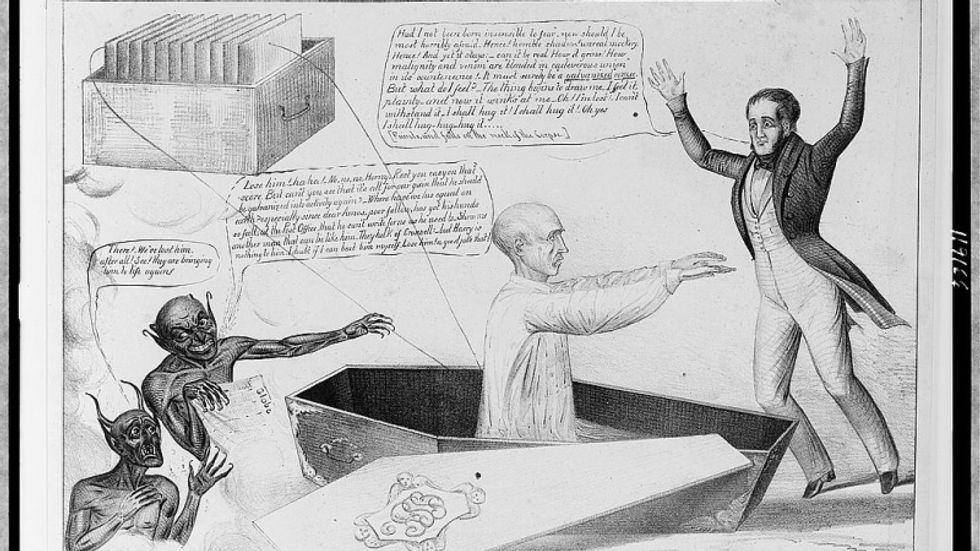 Had I not been born insensible to fear, now should I be
most horribly afraid. Hence! horrible shadow! unreal mockery
Hence! And yet it stays: _ can it be real. How it grins! How
malignity and venom are blended in cadaverous union
in its countenance! It must surely be a galvanized corpse.
But what do I feel? _ The thing begins to draw me. I feel it
plainly. and now it winks at me. Oh! I'm lost! I can't
withstand it. I shall hug it! I shall hug it! Oh yes
I shall hug-hug-hug it.....
[Faints, and falls on the neck of the Corpse.]
Lose him! ha ha! _ No, no, no, Henry, Rest you easy on that
score. But can't you see that it's all for our gain that he should
be galvanized into activity again? _ Where have we his equal on
earth? especially since dear Amos, poor fellow, has got his hands
so full at the Post Office that he can't write for us as he used to. Show me
another man that can lie like him. They talk of Croswell _ and is
nothing to him. I doubt if I can beat him myself. Lose him! a good joke that!
There! We've lost him
after all! See! they are bringing
him to life again!
Globe